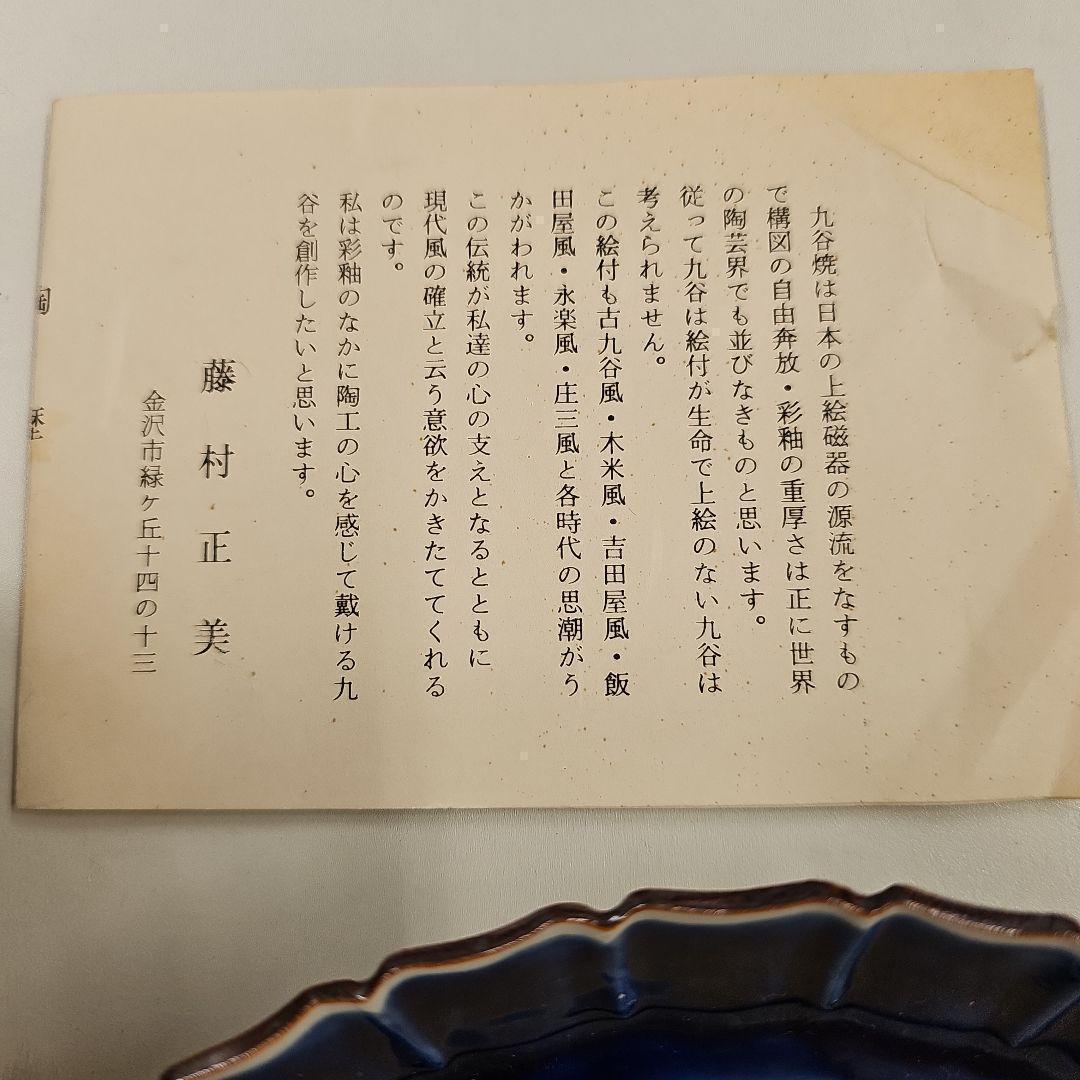 九谷焼は日本の上絵磁器の源流をなすもの
で構図の自由奔放・彩釉の重厚さは正に世界
の陶芸界でも並びなきものと思います。
従って九谷は絵付が生命で上絵のない九谷は
考えられません。
この絵付も古九谷風・木米風・吉田屋風・飯
田屋風・永楽風・庄三風と各時代の思潮がう
かがわれます。
この伝統が私達の心の支えとなるとともに
現代風の確立と云う意欲をかきたててくれる
のです。
私は彩釉のなかに陶工の心を感じて戴ける九
谷を創作したいと思います。
藤村正美
金沢市緑ヶ丘十四の十三